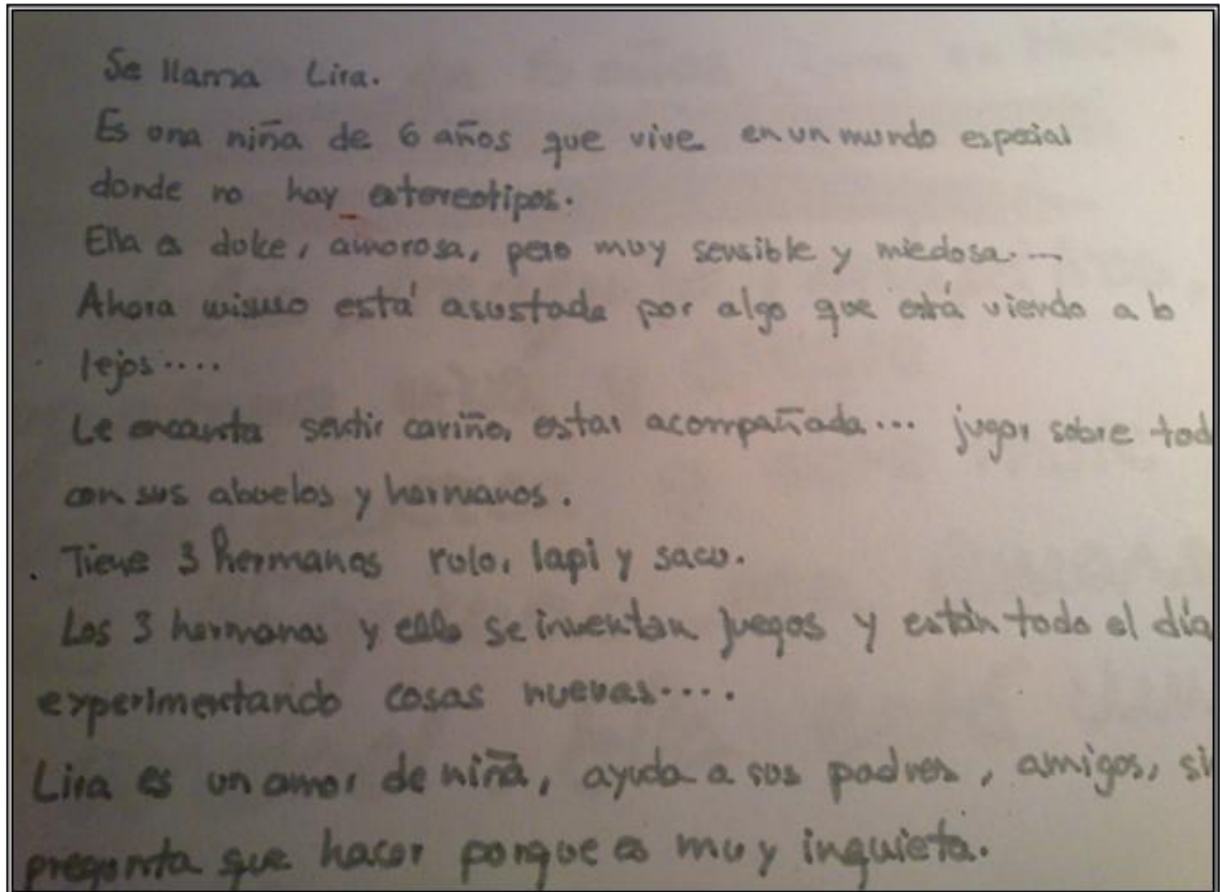 Se llama Lira.
Es una niña de 6 años que vive en un mundo especial
donde no hay estereotipos.
Ella es dulce, amorosa, pero muy sensible y miedosa....
Ahora mismo está asustada por algo que está viendo a lo
lejos....
Le encanta sentir cariño, estar acompañada... jugar sobre tod
con sus abuelos y hermanos.
Tiene 3 hermanos rulo, lapi y sacu.
Los 3 hermanos y ella se inventan juegos y están todo el día
experimentando cosas nuevas....
Lira es un amor de niña, ayuda a sus padres, amigos, si
pregunta que hacer porque es muy inquieta.